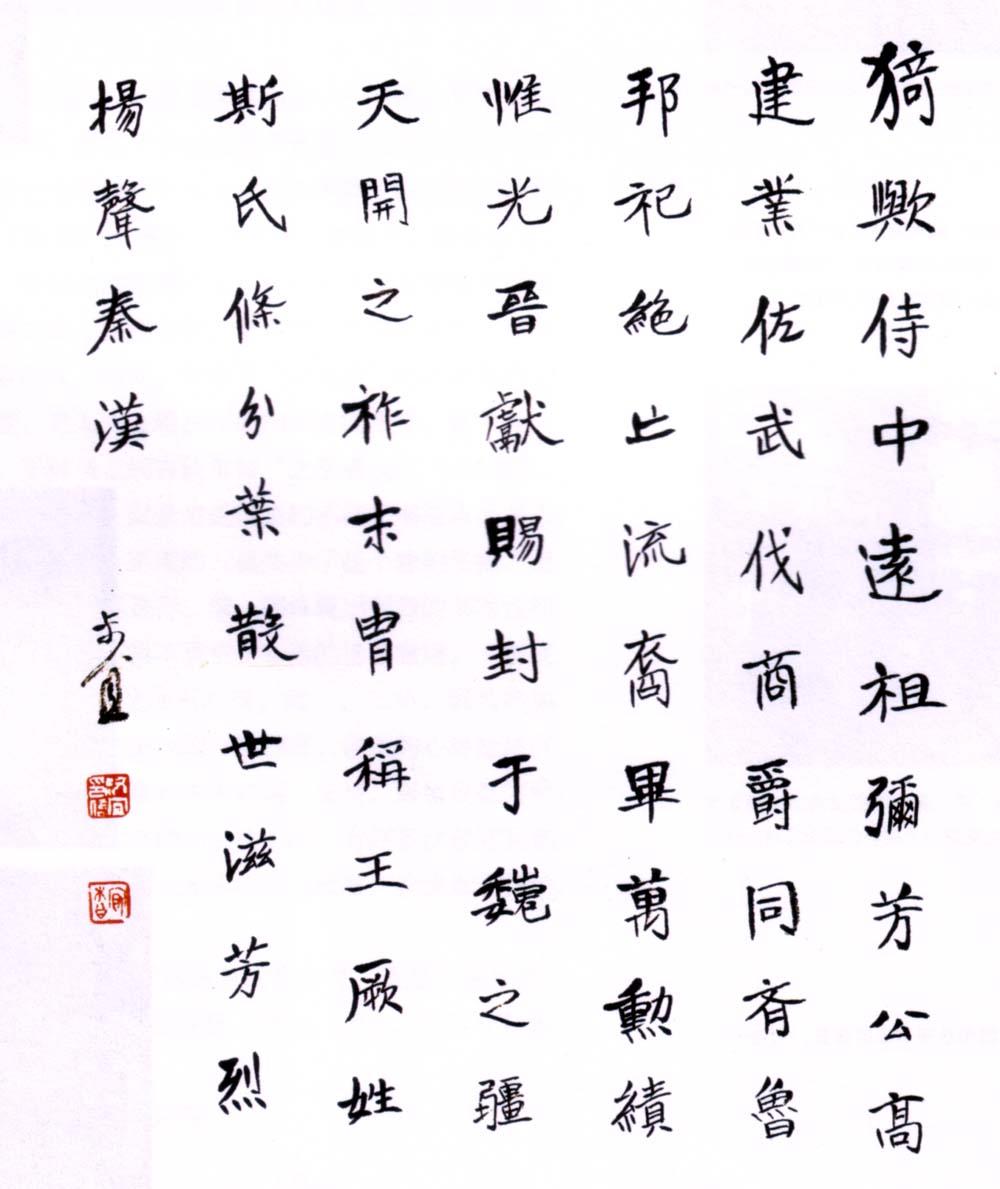 猗歟侍中遠祖彌芳公高
建業佐武伐商爵同齊魯
邦祀絕止流裔畢萬勳績
惟光晉獻賜封于魏之疆
天開之祚末胄稱王厥姓
斯氏條分葉散世滋芳烈
楊聲秦漢